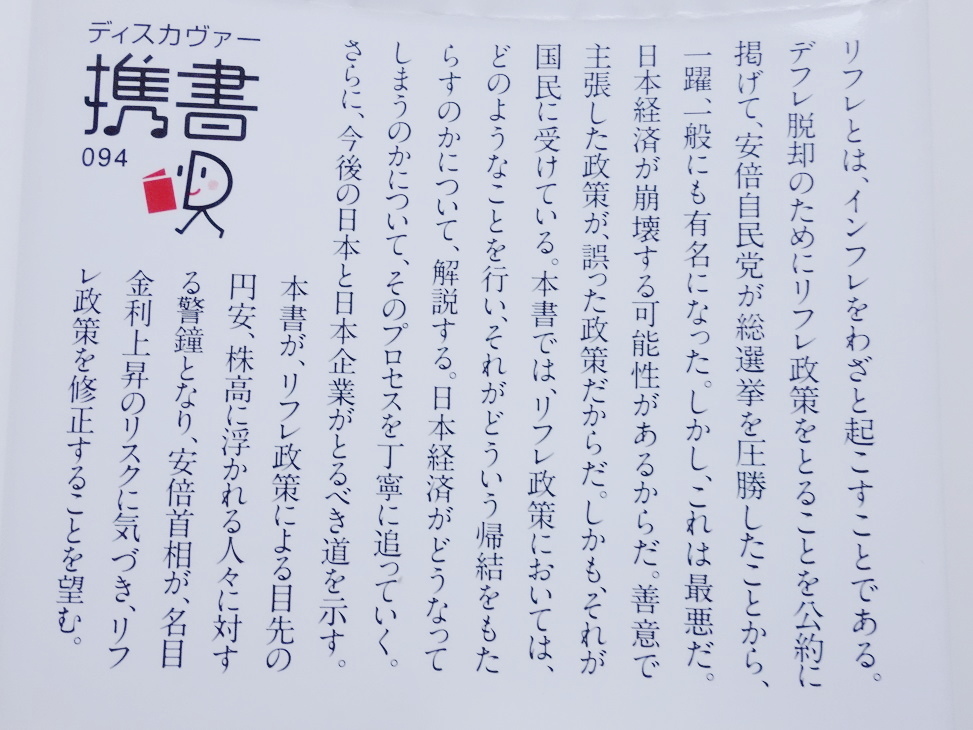 リフレとは、インフレをわざと起こすことである。
デフレ脱却のためにリフレ政策をとることを公約に
掲げて、安倍自民党が総選挙を圧勝したことから、
一躍、一般にも有名になった。しかし、これは最悪だ。
日本経済が崩壊する可能性があるからだ。善意で
主張した政策が、誤った政策だからだ。しかも、それが
国民に受けている。本書では、リフレ政策においては、
どのようなことを行い、それがどういう帰結をもた
らすのかについて、解説する。日本経済がどうなって
しまうのかについて、そのプロセスを丁寧に追っていく。
さらに、今後の日本と日本企業がとるべき道を示す。
本書が、リフレ政策による目先の
円安、株高に浮かれる人々に対す
る警鐘となり、安倍首相が、名目
金利上昇のリスクに気づき、リフ
レ政策を修正することを望む。
ディスカヴァー
携書
094